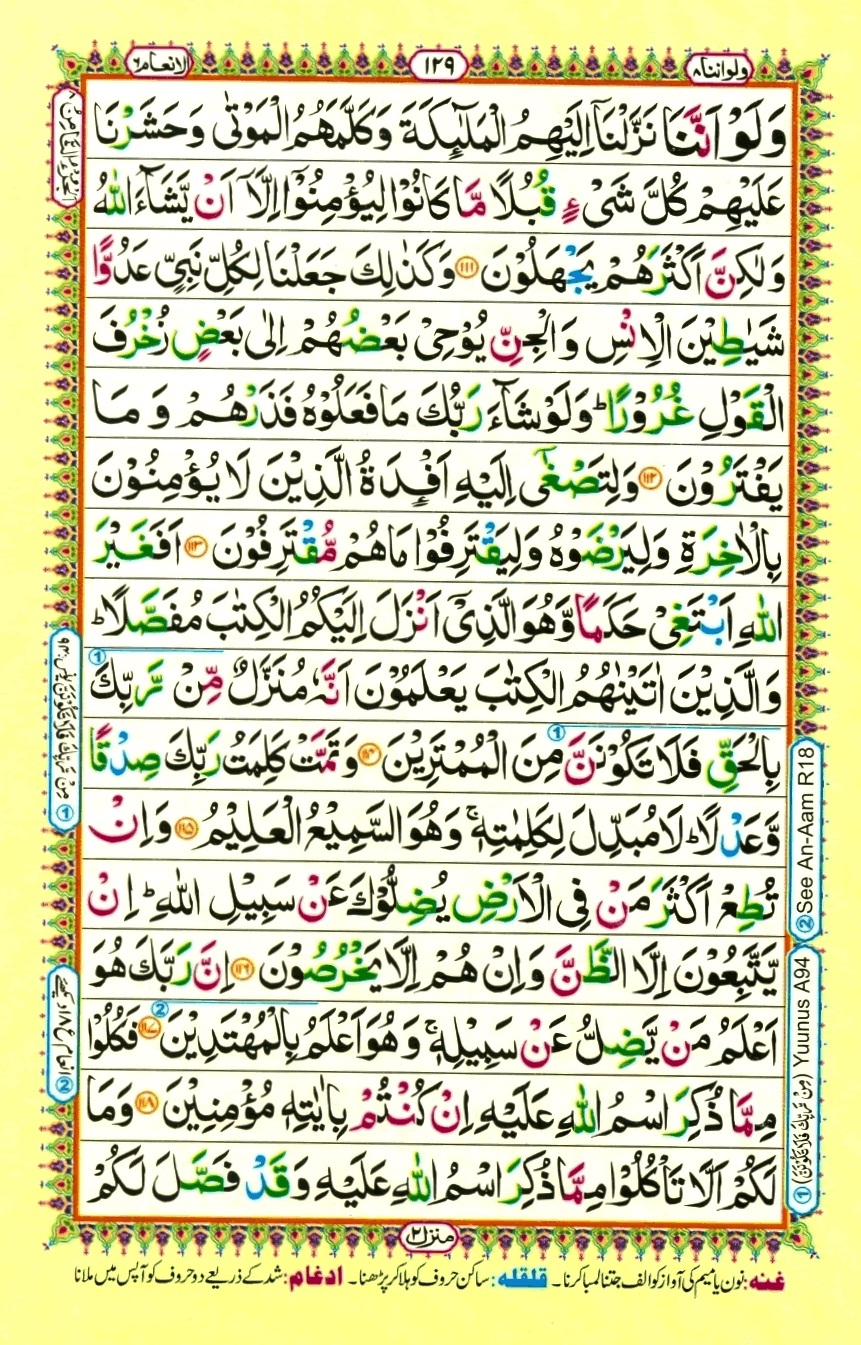 ولواننا۸
۱۲۹
الانعام۶
وَلَوْ اَنَّنَا نَزَّلْنَاۤ اِلَيْهِمُ الْمَلٰٓئِكَةَ وَكَلَّمَهُمُ الْمَوْتٰى وَحَشَرْنَا
عَلَيْهِمْ كُلَّ شَىْءٍ قُبُلًا مَّا كَانُوْا لِيُؤْمِنُوْۤا اِلَّاۤ اَنْ يَّشَآءَ اللّٰهُ
وَلٰكِنَّ اَكْثَرَهُمْ يَجْهَلُوْنَ ﴿۱۱۱﴾ وَكَذٰلِكَ جَعَلْنَا لِكُلِّ نَبِىٍّ عَدُوًّا
شَيٰطِيْنَ الْاِنْسِ وَالْجِنِّ يُوْحِىْ بَعْضُهُمْ اِلٰى بَعْضٍ زُخْرُفَ
الْقَوْلِ غُرُوْرًا ؕ وَلَوْ شَآءَ رَبُّكَ مَا فَعَلُوْهُ فَذَرْهُمْ وَمَا
يَفْتَرُوْنَ ﴿۱۱۲﴾ وَلِتَصْغٰۤى اِلَيْهِ اَفْـِٕدَةُ الَّذِيْنَ لَا يُؤْمِنُوْنَ
بِالْاٰخِرَةِ وَلِيَرْضَوْهُ وَلِيَقْتَرِفُوْا مَا هُمْ مُّقْتَرِفُوْنَ ﴿۱۱۳﴾ اَفَغَيْرَ
اللّٰهِ اَبْتَغِىْ حَكَمًا وَّهُوَ الَّذِىْۤ اَنْزَلَ اِلَيْكُمُ الْكِتٰبَ مُفَصَّلًا ؕ
وَالَّذِيْنَ اٰتَيْنٰهُمُ الْكِتٰبَ يَعْلَمُوْنَ اَنَّهٗ مُنَزَّلٌ مِّنْ رَّبِّكَ
بِالْحَقِّ فَلَا تَكُوْنَنَّ مِنَ الْمُمْتَرِيْنَ ﴿۱۱۴﴾ وَتَمَّتْ كَلِمَتُ رَبِّكَ صِدْقًا
وَّعَدْلًا ؕ لَا مُبَدِّلَ لِكَلِمٰتِهٖ ۚ وَهُوَ السَّمِيْعُ الْعَلِيْمُ ﴿۱۱۵﴾ وَاِنْ
تُطِعْ اَكْثَرَ مَنْ فِى الْاَرْضِ يُضِلُّوْكَ عَنْ سَبِيْلِ اللّٰهِ ؕ اِنْ
يَّتَّبِعُوْنَ اِلَّا الظَّنَّ وَاِنْ هُمْ اِلَّا يَخْرُصُوْنَ ﴿۱۱۶﴾ اِنَّ رَبَّكَ هُوَ
اَعْلَمُ مَنْ يَّضِلُّ عَنْ سَبِيْلِهٖ ۚ وَهُوَ اَعْلَمُ بِالْمُهْتَدِيْنَ ﴿۱۱۷﴾ فَكُلُوْا
مِمَّا ذُكِرَ اسْمُ اللّٰهِ عَلَيْهِ اِنْ كُنْتُمْ بِاٰيٰتِهٖ مُؤْمِنِيْنَ ﴿۱۱۸﴾ وَمَا
لَكُمْ اَلَّا تَاْكُلُوْا مِمَّا ذُكِرَ اسْمُ اللّٰهِ عَلَيْهِ وَقَدْ فَصَّلَ لَكُمْ
② See An-Aam R18
① (مِنْ رَّبِّكَ فَلَا تَكُوْنَنَّ) Yuunus A94
منزل۲
غنه: نون یا میم کی آواز کو الف جتنا لمبا کرنا۔ قلقله: ساکن حروف کو ہلا کر پڑھنا۔ ادغام: شد کے ذریعے دو حروف کو آپس میں ملانا